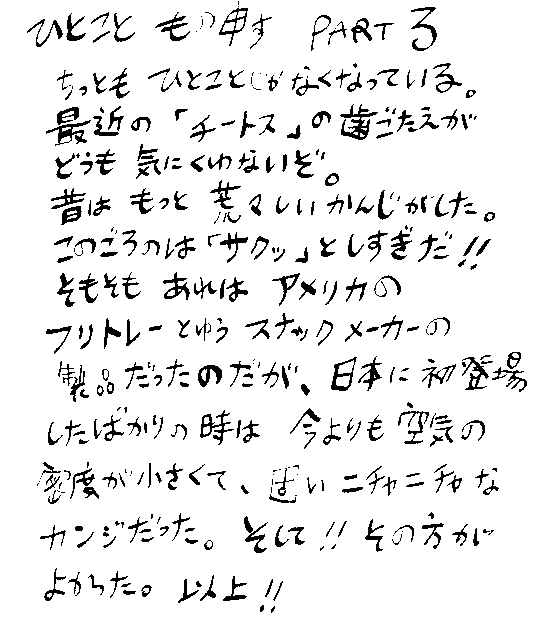 ひとこと もの申す PART 3
ちっとも ひとことじゃなくなっている。
最近の「チートス」の歯ごたえが
どうも 気にくわないぞ。
昔は もっと 荒々しい かんじがした。
このごろのは「サクッ」としすぎだ!!
そもそも あれは アメリカの
フリトレーとゆう スナックメーカーの
製品だったのだが、日本に初登場
したばかりの時は 今よりも 空気の
密度が小さくて、固い ニチャニチャな
カンジだった。そして!! その方が
よかった。以上!!